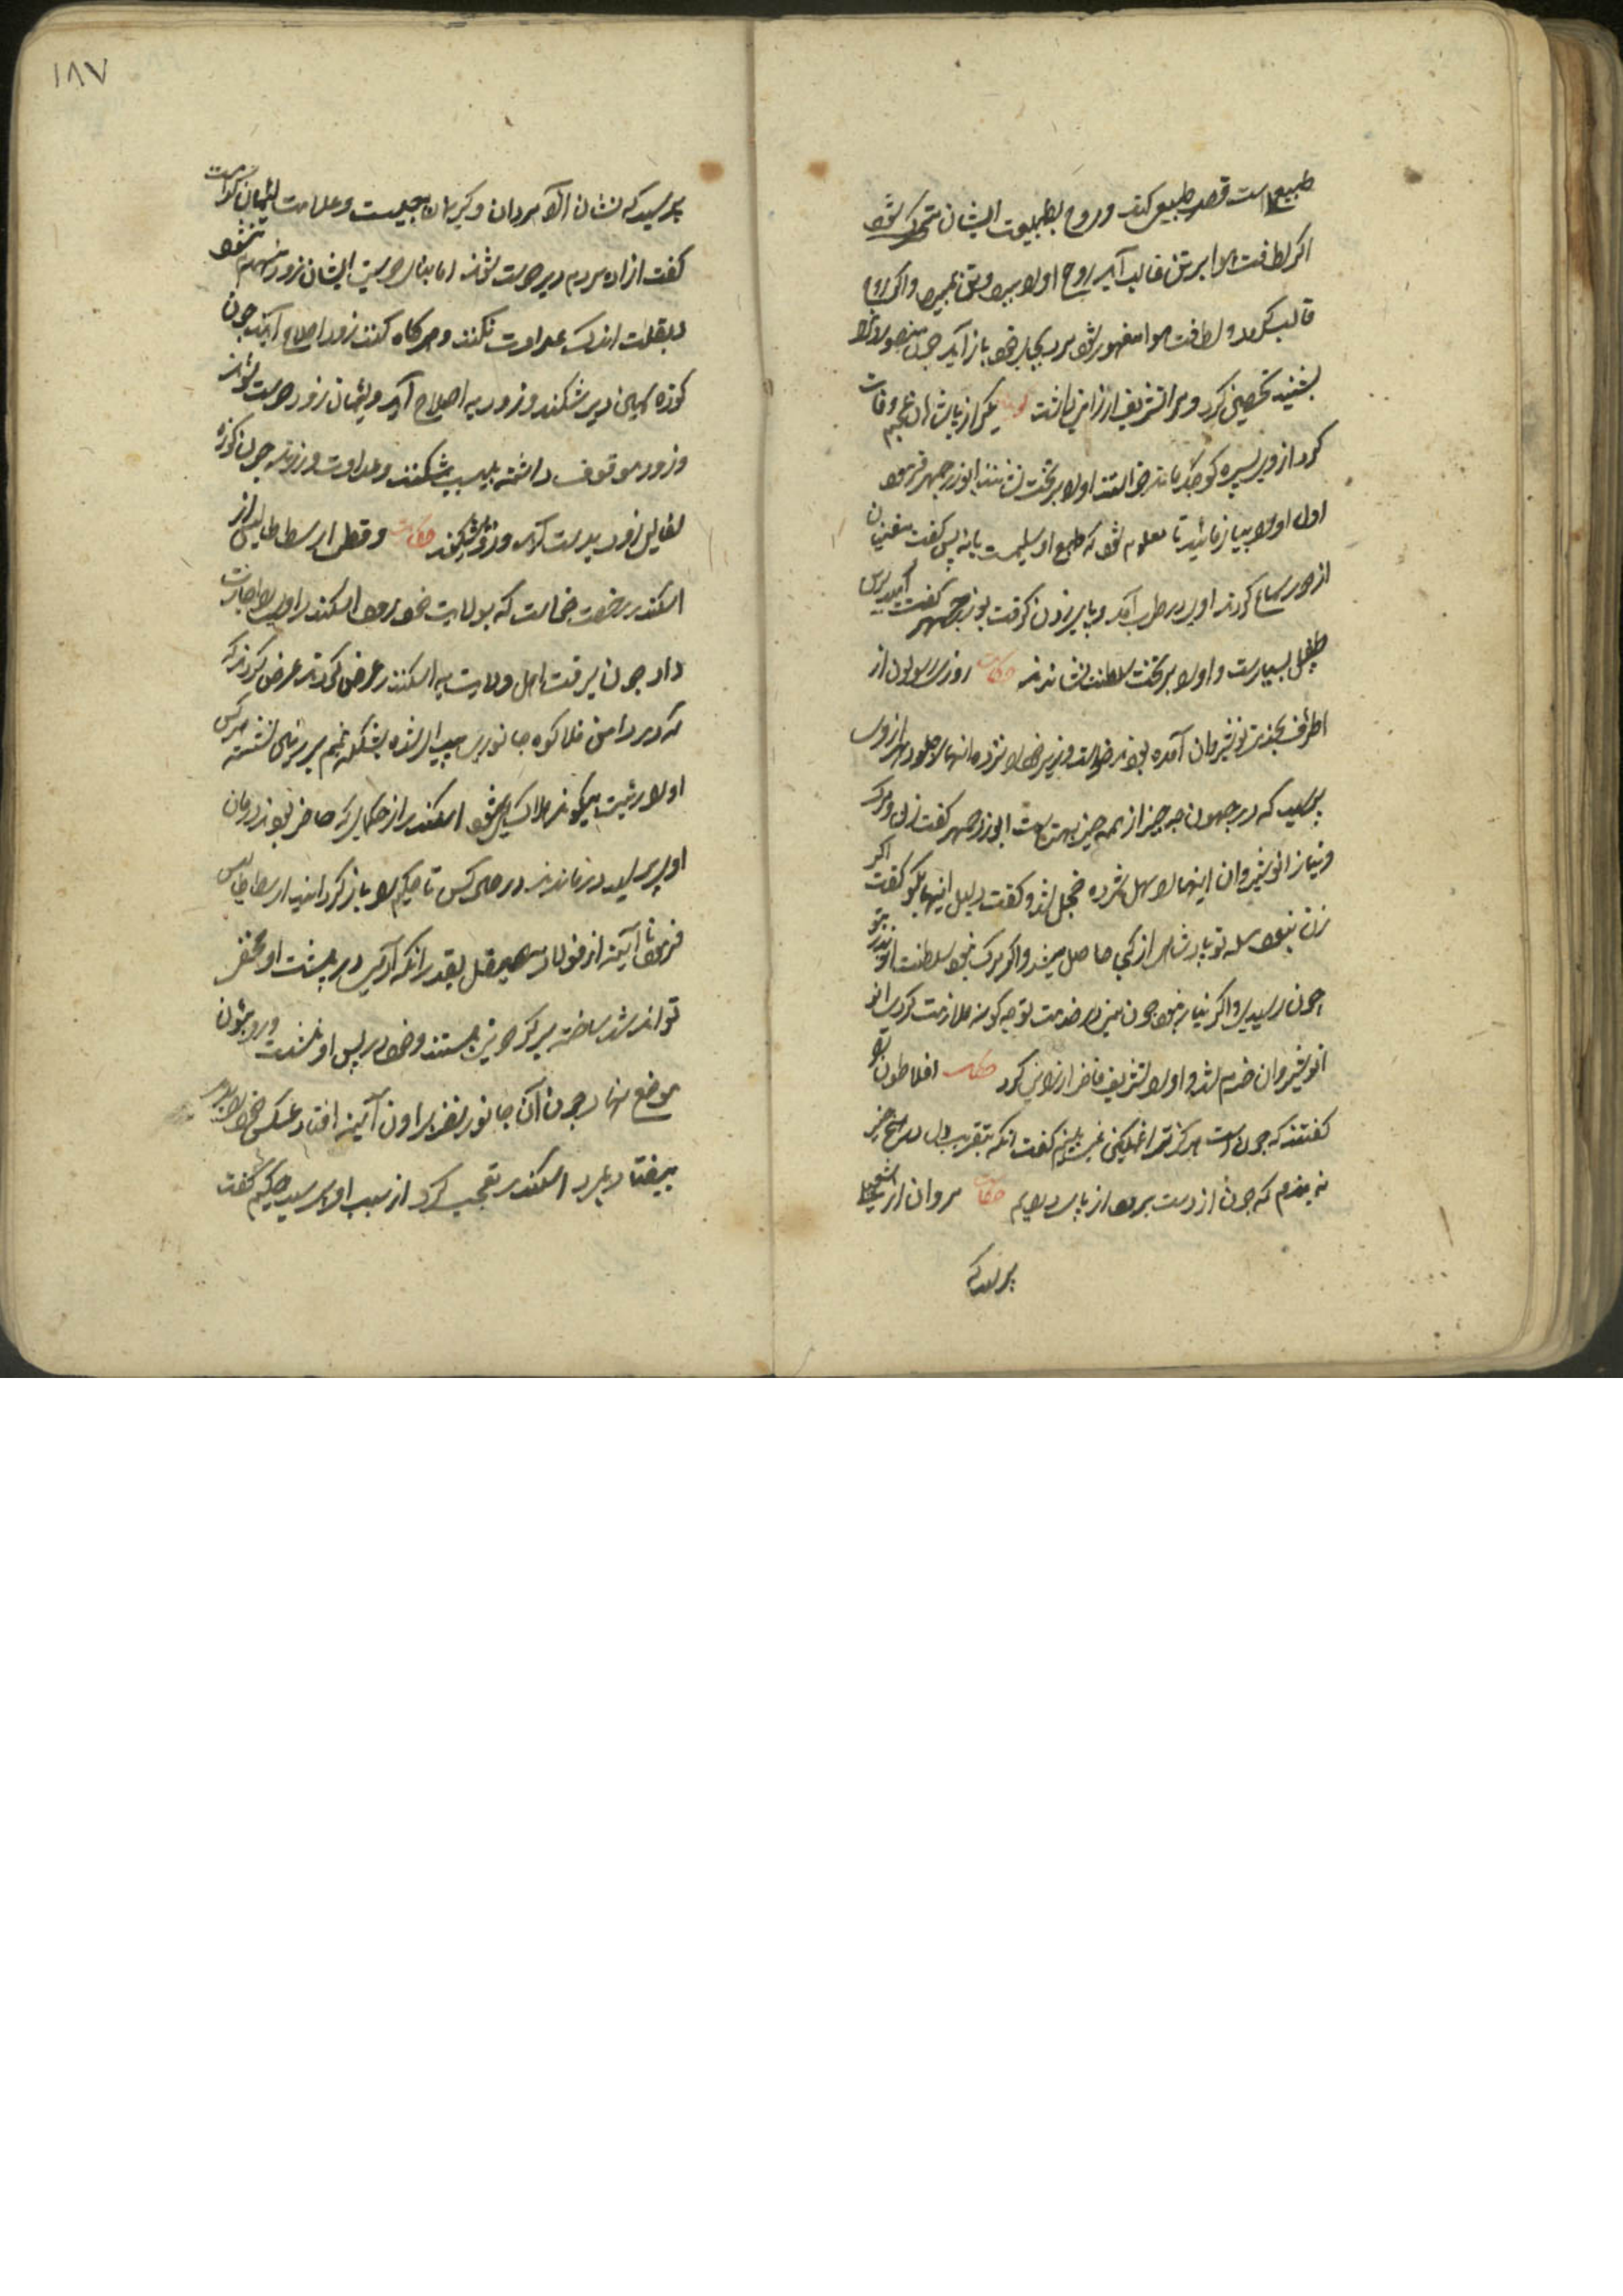 طبیعی است قصد طبیعی کند و روح بطبیعت ایشان متحرک شود
اگر لطافت هوا بر تن غالب آید روح او را ببرد و تن بمیرد و اگر روح
غالب کردد و لطافت هوا مقهور شود مرد بحال خود باز آید چون منصور
بشنید تحسین کرد و مرا تشریف ارزانی داشت یکی از پادشاهان عجم وفات
کرد از وی پسری کوچک ماند خواستند او را بر تخت نشانند ابوزرجمهر فرمود
اول او را بیازمائید تا معلوم شود که طبع او سلیمست یا نه پس گفت مغنیان
از هر ساع کردند او در طرب آمد و پا بر زدن گرفت بوزرجمهر گفت امید بدین
طفل بسیارست و او را بر تخت سلطنت نشاندند حکایت روزی رسولان از
اطراف بخدمت نوشیروان آمده بودند خواست وزیر خود را نزد مانها جلوه دهد از وی
پرسید که در جهان چه چیز از همه چیز بهترست ابوزرجمهر گفت زن و مرگ
و نیاز انوشیروان اینها را سهل شمرده خجل شد و گفت دلیل اینها بگو گفت اگر
زن نبودی تو پادشاهی از کی حاصل میشد و اگر مرگ نبود سلطنت از پدر بتو
چون رسیدی و اگر نیاز نبود چون منی در خدمت تو چه گونه ملازمت کردی
انوشیروان خرم شد و او را تشریف فاخر ارزانی کرد حکایت افلاطون را
گفتند که چون است هرگز ترا غمگین نمی بینیم گفت انکه بتقریب دل در هیچ چیز
نه بندم که چون از دست برود از پا در ایم حکایت مروان از
پرسید که
١٨٧
پرسید که نشان آزاد مردان و کریمان چیست و علامت لئیمان کدامست
گفت ازاده مردم دیر دوست شوند اما بنای دوستی ایشان زود منهدم نشود
و بقلت اندک عداوت نکنند و هرگاه کنند زود اصلاح آیند چون
کوزه سیمین دیر شکند و زود به اصلاح آید و لئیمان زود دوست شوند
و زود موقوف داشته بی سبب بشکنند و عداوت ورزند چون کوزه
سفالین زود بدست آید و زود بشکند حکایت وقتی ارسطاطالیس از
اسکندر رخصت خواست که بولایت خود رود اسکندر او را اجازت
داد چون برفت اهل ولایت به اسکندر عرض کردند عرض کردند که
که در دامن فلا کوه جانوری پیدا شده بشکل نیم بر سنگی نشسته هر کس
او را رؤیت میکند هلاک میشود اسکندر از حکما که حاضر بودند درمان
او پرسید درماندند در حال کس تا حکیم را باز گردانید ارسطاطالیس
فرمود تا آینه از فولاد صیقل بقدر انکه آدمی در پشت او مخفی
تواند شد ساخته بر گردونی بستند و خود در پس او نشست و رو بدان
موضع نهاد چون آن جانور نظر بر اون آینه افتاد عکس خود را بدید
بیفتاد و بمرد اسکندر تعجب کرد از سبب او پرسید حکیم گفت